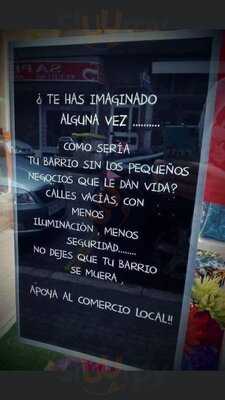 ¿ TE HAS IMAGINADO
ALGUNA VEZ ..........
COMO SERÍA
TU BARRIO SIN LOS PEQUEÑOS
NEGOCIOS QUE LE DAN VIDA?
CALLES VACÍAS, CON
MENOS
ILUMINACIÒN , MENOS
SEGURIDAD.......
NO DEJES QUE TU BARRIO
SE MUERA ,
APOYA AL COMERCIO LOCAL!!